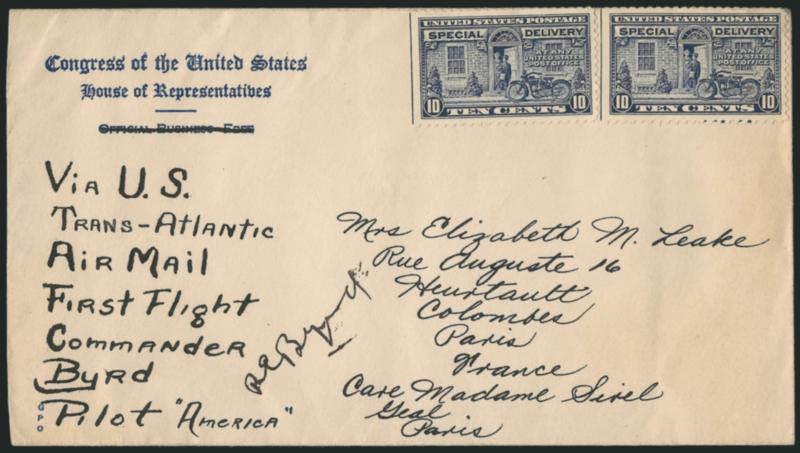 Congress of the United States
House of Representatives
Official Business—Free
UNITED STATES POSTAGE
SPECIAL DELIVERY
AT ANY
UNITED STATES
POST OFFICE
10 TEN CENTS 10
UNITED STATES POSTAGE
SPECIAL DELIVERY
AT ANY
UNITED STATES
POST OFFICE
10 TEN CENTS 10
VIA U.S.
TRANS-ATLANTIC
AIR MAIL
FIRST FLIGHT
COMMANDER
BYRD
PILOT "AMERICA"
GPO
Byrd
Mrs Elizabeth M. Leake
Rue Auguste 16
Heurtault
Colombes
Paris
France
Care Madame Sirel
Paris